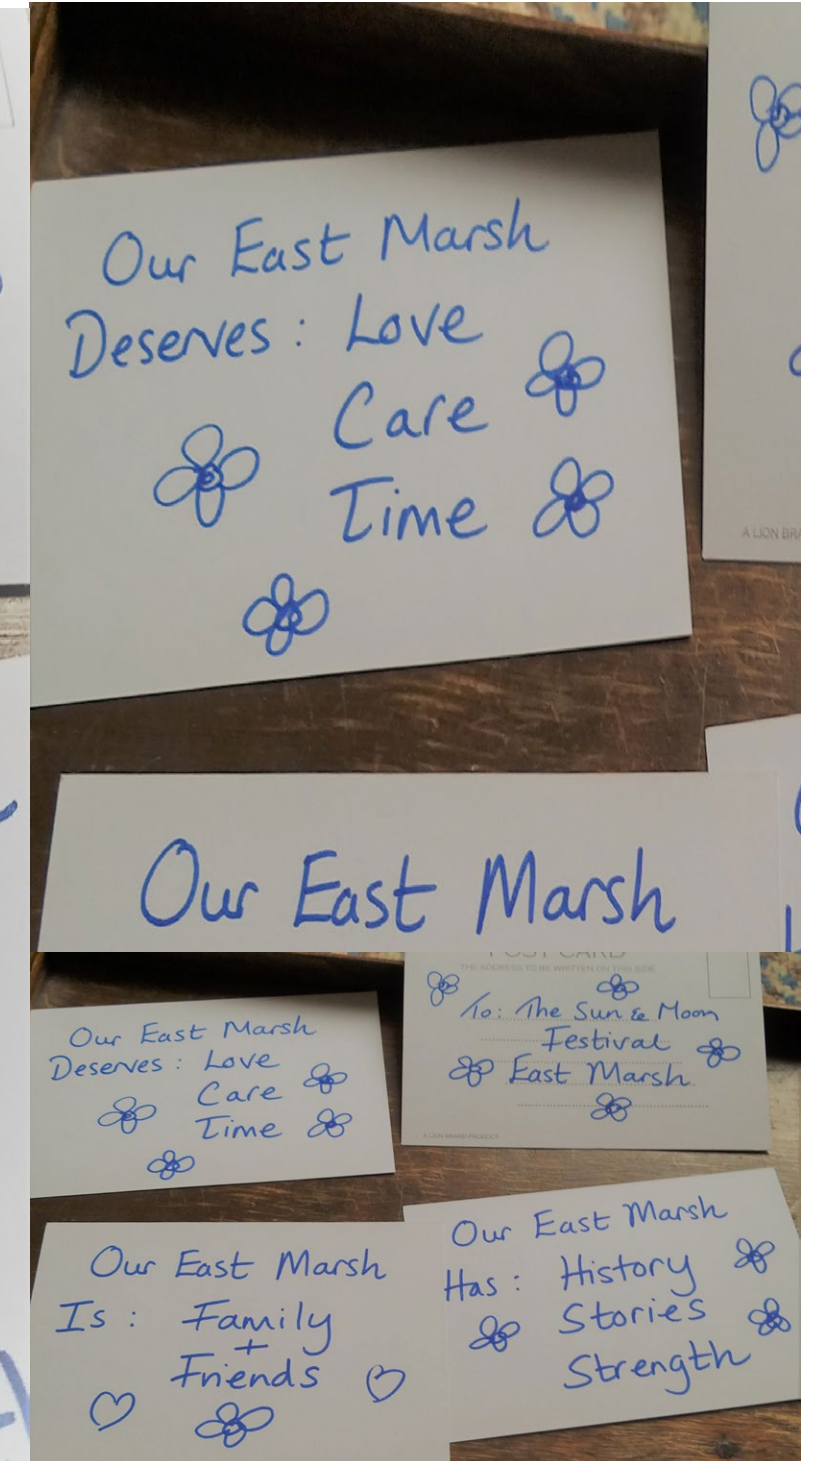 Our East Marsh
Deserves : Love
Care
Time
A LION BRA
Our East Marsh
Our East Marsh
Deserves : Love
Care
Time
POST CARD
THE ADDRESS TO BE WRITTEN ON THIS SIDE
To: The Sun & Moon
Festival
East Marsh
A LION BRAND PRODUCT
Our East Marsh
Is : Family
+
Friends
Our East Marsh
Has : History
Stories
Strength